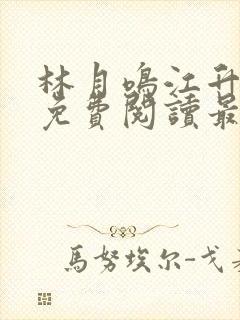 林月鳴江升
免費閱讀最
馬努埃尔-戈麦